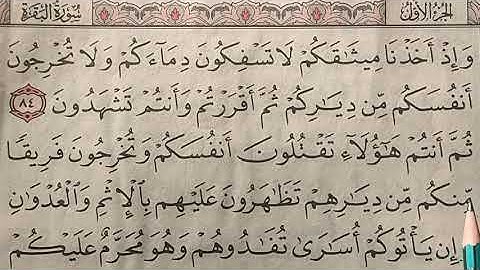 الجزء الأول سورة البقرة
وَإِذْ أَخَذْنَا مِيثَـٰقَكُمْ لَا تَسْفِكُونَ دِمَآءَكُمْ وَلَا تُخْرِجُونَ
أَنفُسَكُم مِّن دِيَـٰرِكُمْ ثُمَّ أَقْرَرْتُمْ وَأَنتُمْ تَشْهَدُونَ ٨٤
ثُمَّ أَنتُمْ هَـٰٓؤُلَآءِ تَقْتُلُونَ أَنفُسَكُمْ وَتُخْرِجُونَ فَرِيقًا
مِّنكُم مِّن دِيَـٰرِهِمْ تَظَـٰهَرُونَ عَلَيْهِم بِٱلْإِثْمِ وَٱلْعُدْوَٰنِ
إِن يَأْتُوكُمْ أُسَـٰرَىٰ تُفَـٰدُوهُمْ وَهُوَ مُحَرَّمٌ عَلَيْكُمْ